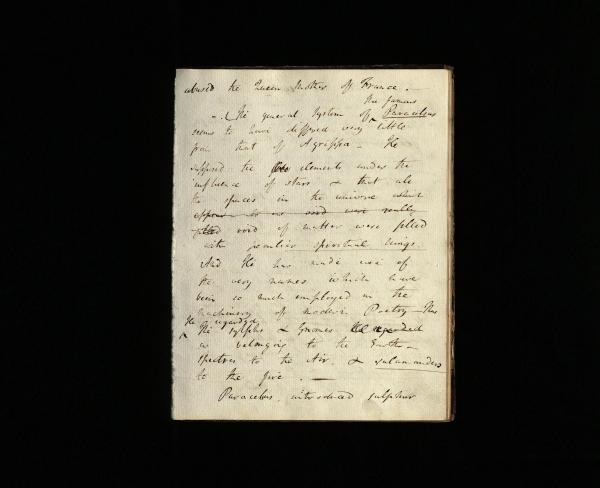 abused the Queen Mother of France. —
the famous
— . The general System of Paracelsus
seems to have differed very little
from that of Agrippa — He
supposed the elements under the
influence of stars & that all
the spaces in the universe which
appear to us void were really
filled void of matter were filled
with peculiar spiritual beings.
And He has made use of
the very names which have
been so much employed in the
machinery of modern Poetry — Thus
He regarded
The sylphs & Gnomes He regarded
as belonging to the Earth —
spectres to the Air. & salamanders
to the fire . —
Paracelsus introduced sulphur